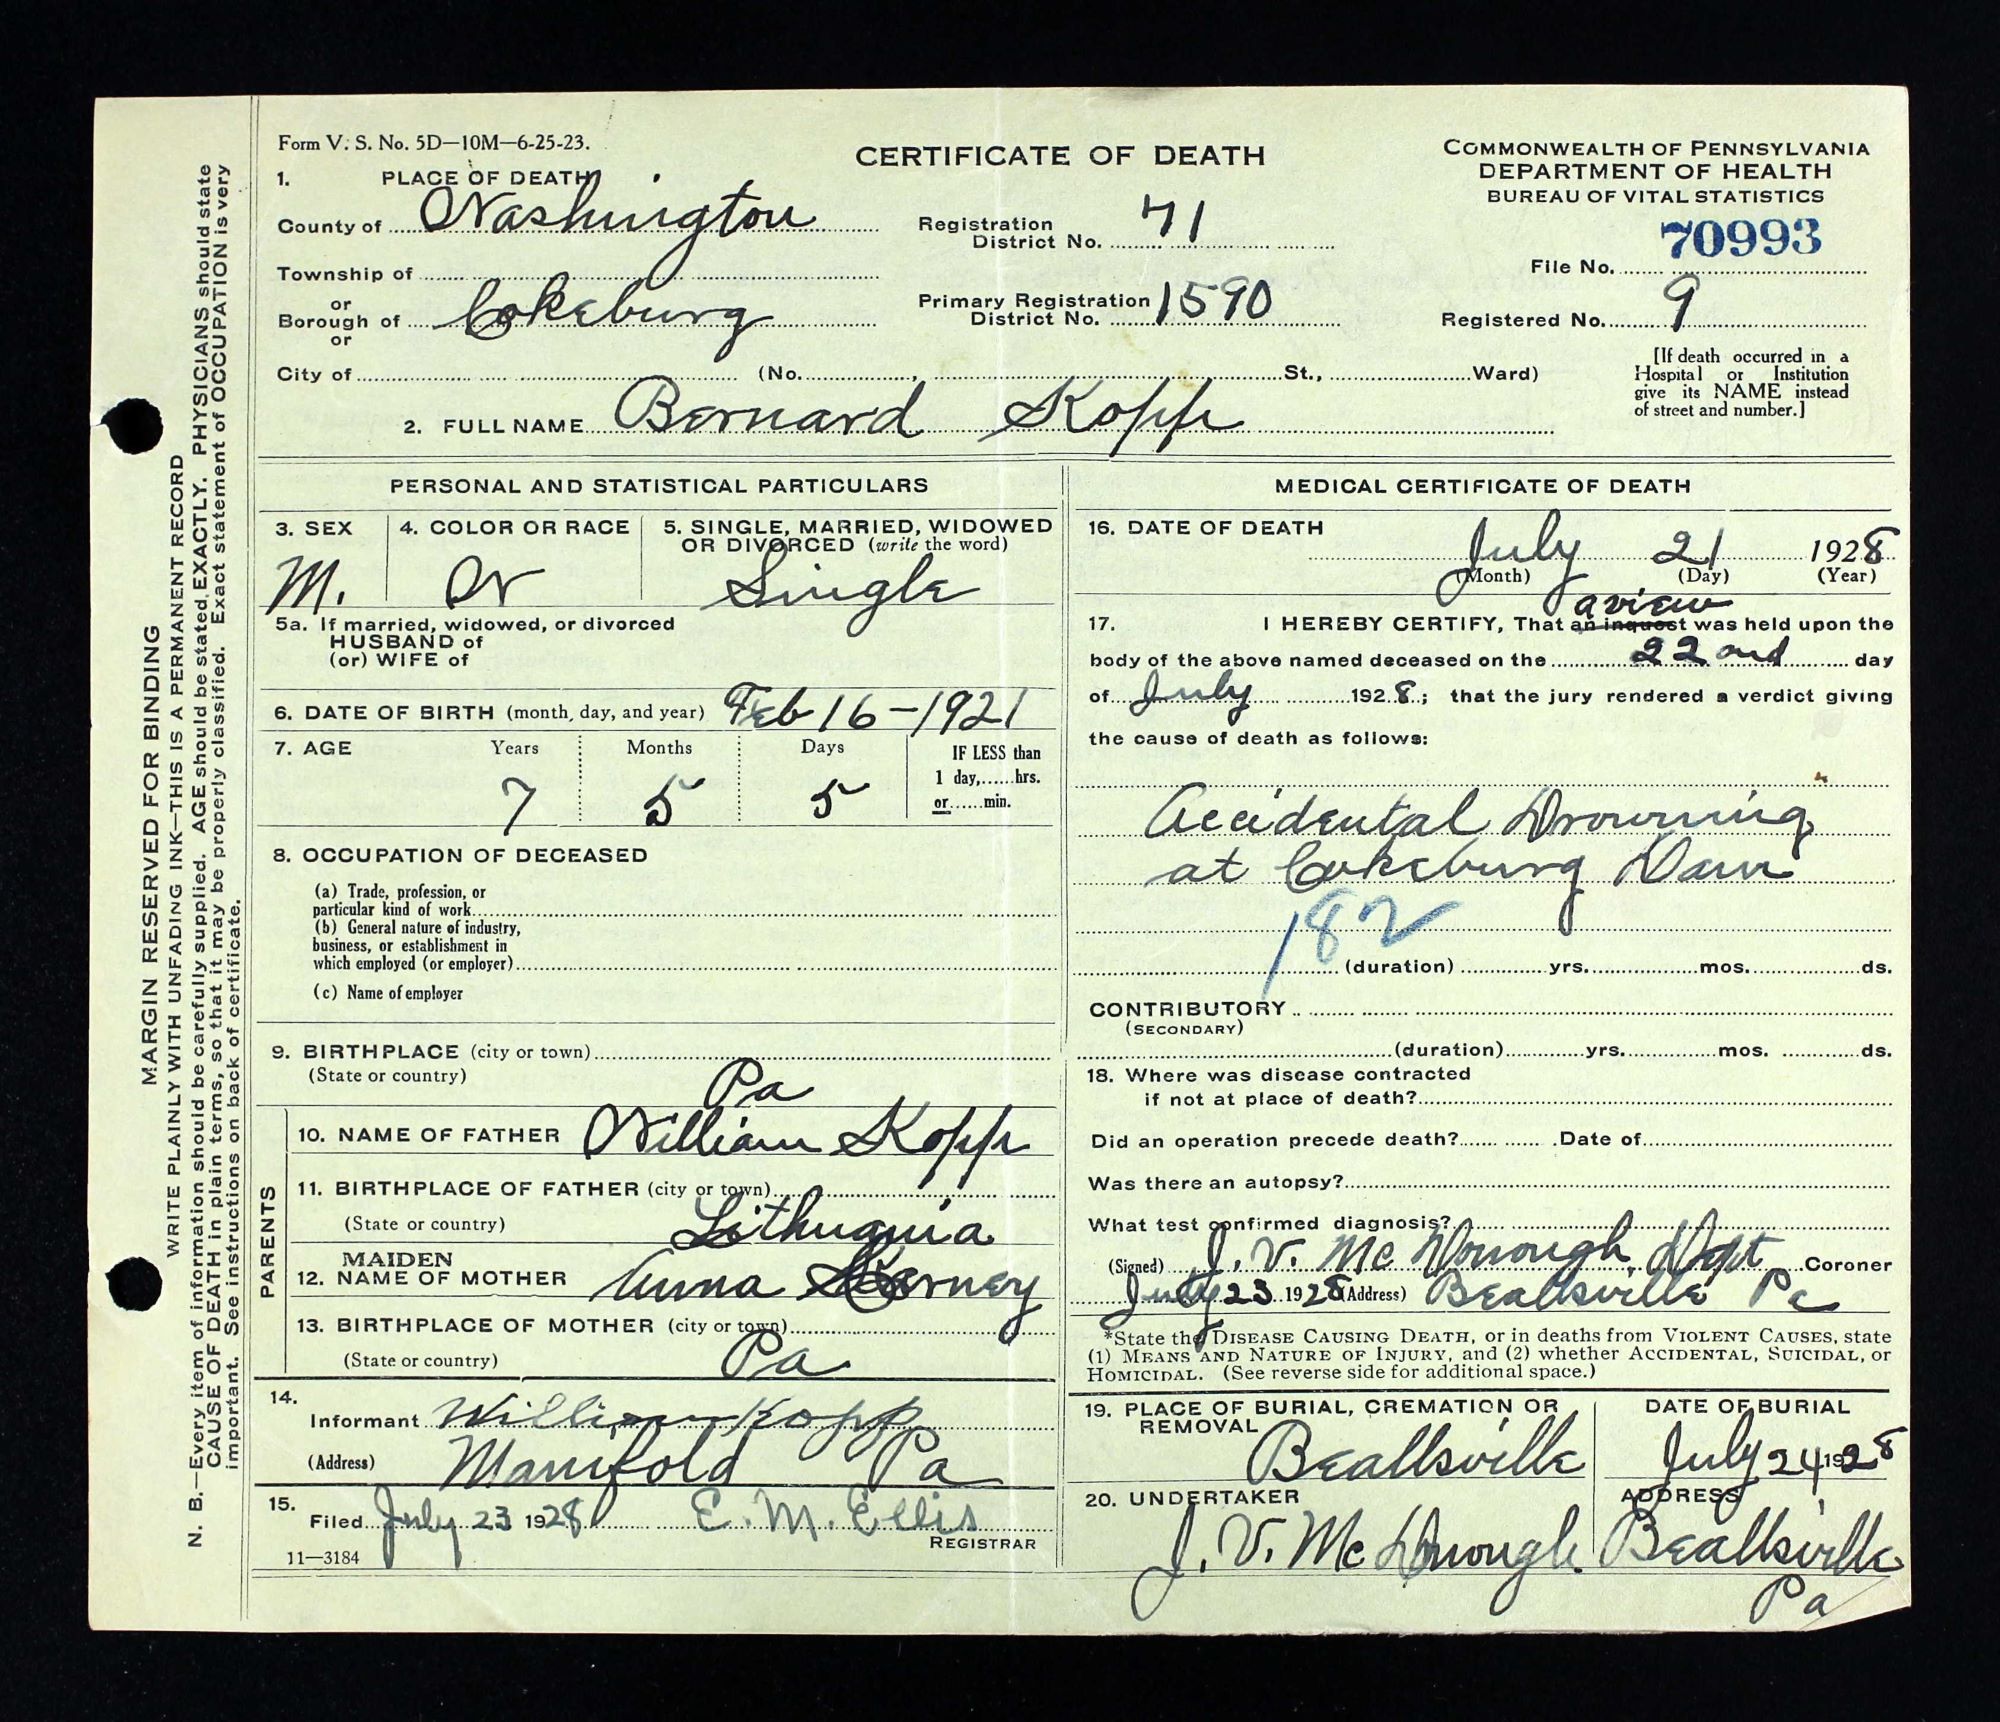 Form V. S. No. 5D—10M—6-25-23.
CERTIFICATE OF DEATH
COMMONWEALTH OF PENNSYLVANIA
DEPARTMENT OF HEALTH
BUREAU OF VITAL STATISTICS
1. PLACE OF DEATH
County of Washington
Registration District No. 71
70993
File No.
Township of
or
Borough of Cokeburg
or
Primary Registration District No. 1590
Registered No. 9
City of (No. , St., Ward)
[If death occurred in a
Hospital or Institution
give its NAME instead
of street and number.]
2. FULL NAME Bernard Kopp
PERSONAL AND STATISTICAL PARTICULARS
3. SEX
M.
4. COLOR OR RACE
W
5. SINGLE, MARRIED, WIDOWED
OR DIVORCED (write the word)
Single
5a. If married, widowed, or divorced
HUSBAND of
(or) WIFE of
6. DATE OF BIRTH (month, day, and year) Feb 16-1921
7. AGE Years Months Days
7 5 5
IF LESS than
1 day,......hrs.
or......min.
8. OCCUPATION OF DECEASED
(a) Trade, profession, or
particular kind of work
(b) General nature of industry,
business, or establishment in
which employed (or employer)
(c) Name of employer
9. BIRTHPLACE (city or town)
(State or country) Pa
PARENTS
10. NAME OF FATHER William Kopp
11. BIRTHPLACE OF FATHER (city or town)
(State or country) Lithuania
12. MAIDEN NAME OF MOTHER Anna
13. BIRTHPLACE OF MOTHER (city or town)
(State or country) Pa
14.
Informant William Kopp
(Address) Manifold Pa
15.
Filed July 23 1928 E. M. Ellis
REGISTRAR
11—3184
MEDICAL CERTIFICATE OF DEATH
16. DATE OF DEATH
July 21 1928
(Month) (Day) (Year)
a view
17. I HEREBY CERTIFY, That an inquest was held upon the
body of the above named deceased on the 22 ond day
of July 1928; that the jury rendered a verdict giving
the cause of death as follows:
Accidental Drowning
at Cokeburg Dam
182
(duration) yrs. mos. ds.
CONTRIBUTORY
(SECONDARY)
(duration) yrs. mos. ds.
18. Where was disease contracted
if not at place of death?
Did an operation precede death? Date of
Was there an autopsy?
What test confirmed diagnosis?
(Signed) J. V. McDonough, Dept Coroner
July 23 1928 (Address) Beallsville Pa
*State the DISEASE CAUSING DEATH, or in deaths from VIOLENT CAUSES, state
(1) MEANS AND NATURE OF INJURY, and (2) whether ACCIDENTAL, SUICIDAL, or
HOMICIDAL. (See reverse side for additional space.)
19. PLACE OF BURIAL, CREMATION OR
REMOVAL
Beallsville
DATE OF BURIAL
July 24 1928
20. UNDERTAKER
J. V. McDonough.
ADDRESS
Beallsville
Pa
MARGIN RESERVED FOR BINDING
WRITE PLAINLY WITH UNFADING INK—THIS IS A PERMANENT RECORD
N. B.—Every item of information should be carefully supplied. AGE should be stated EXACTLY. PHYSICIANS should state
CAUSE OF DEATH in plain terms, so that it may be properly classified. Exact statement of OCCUPATION is very
important. See instructions on back of certificate.